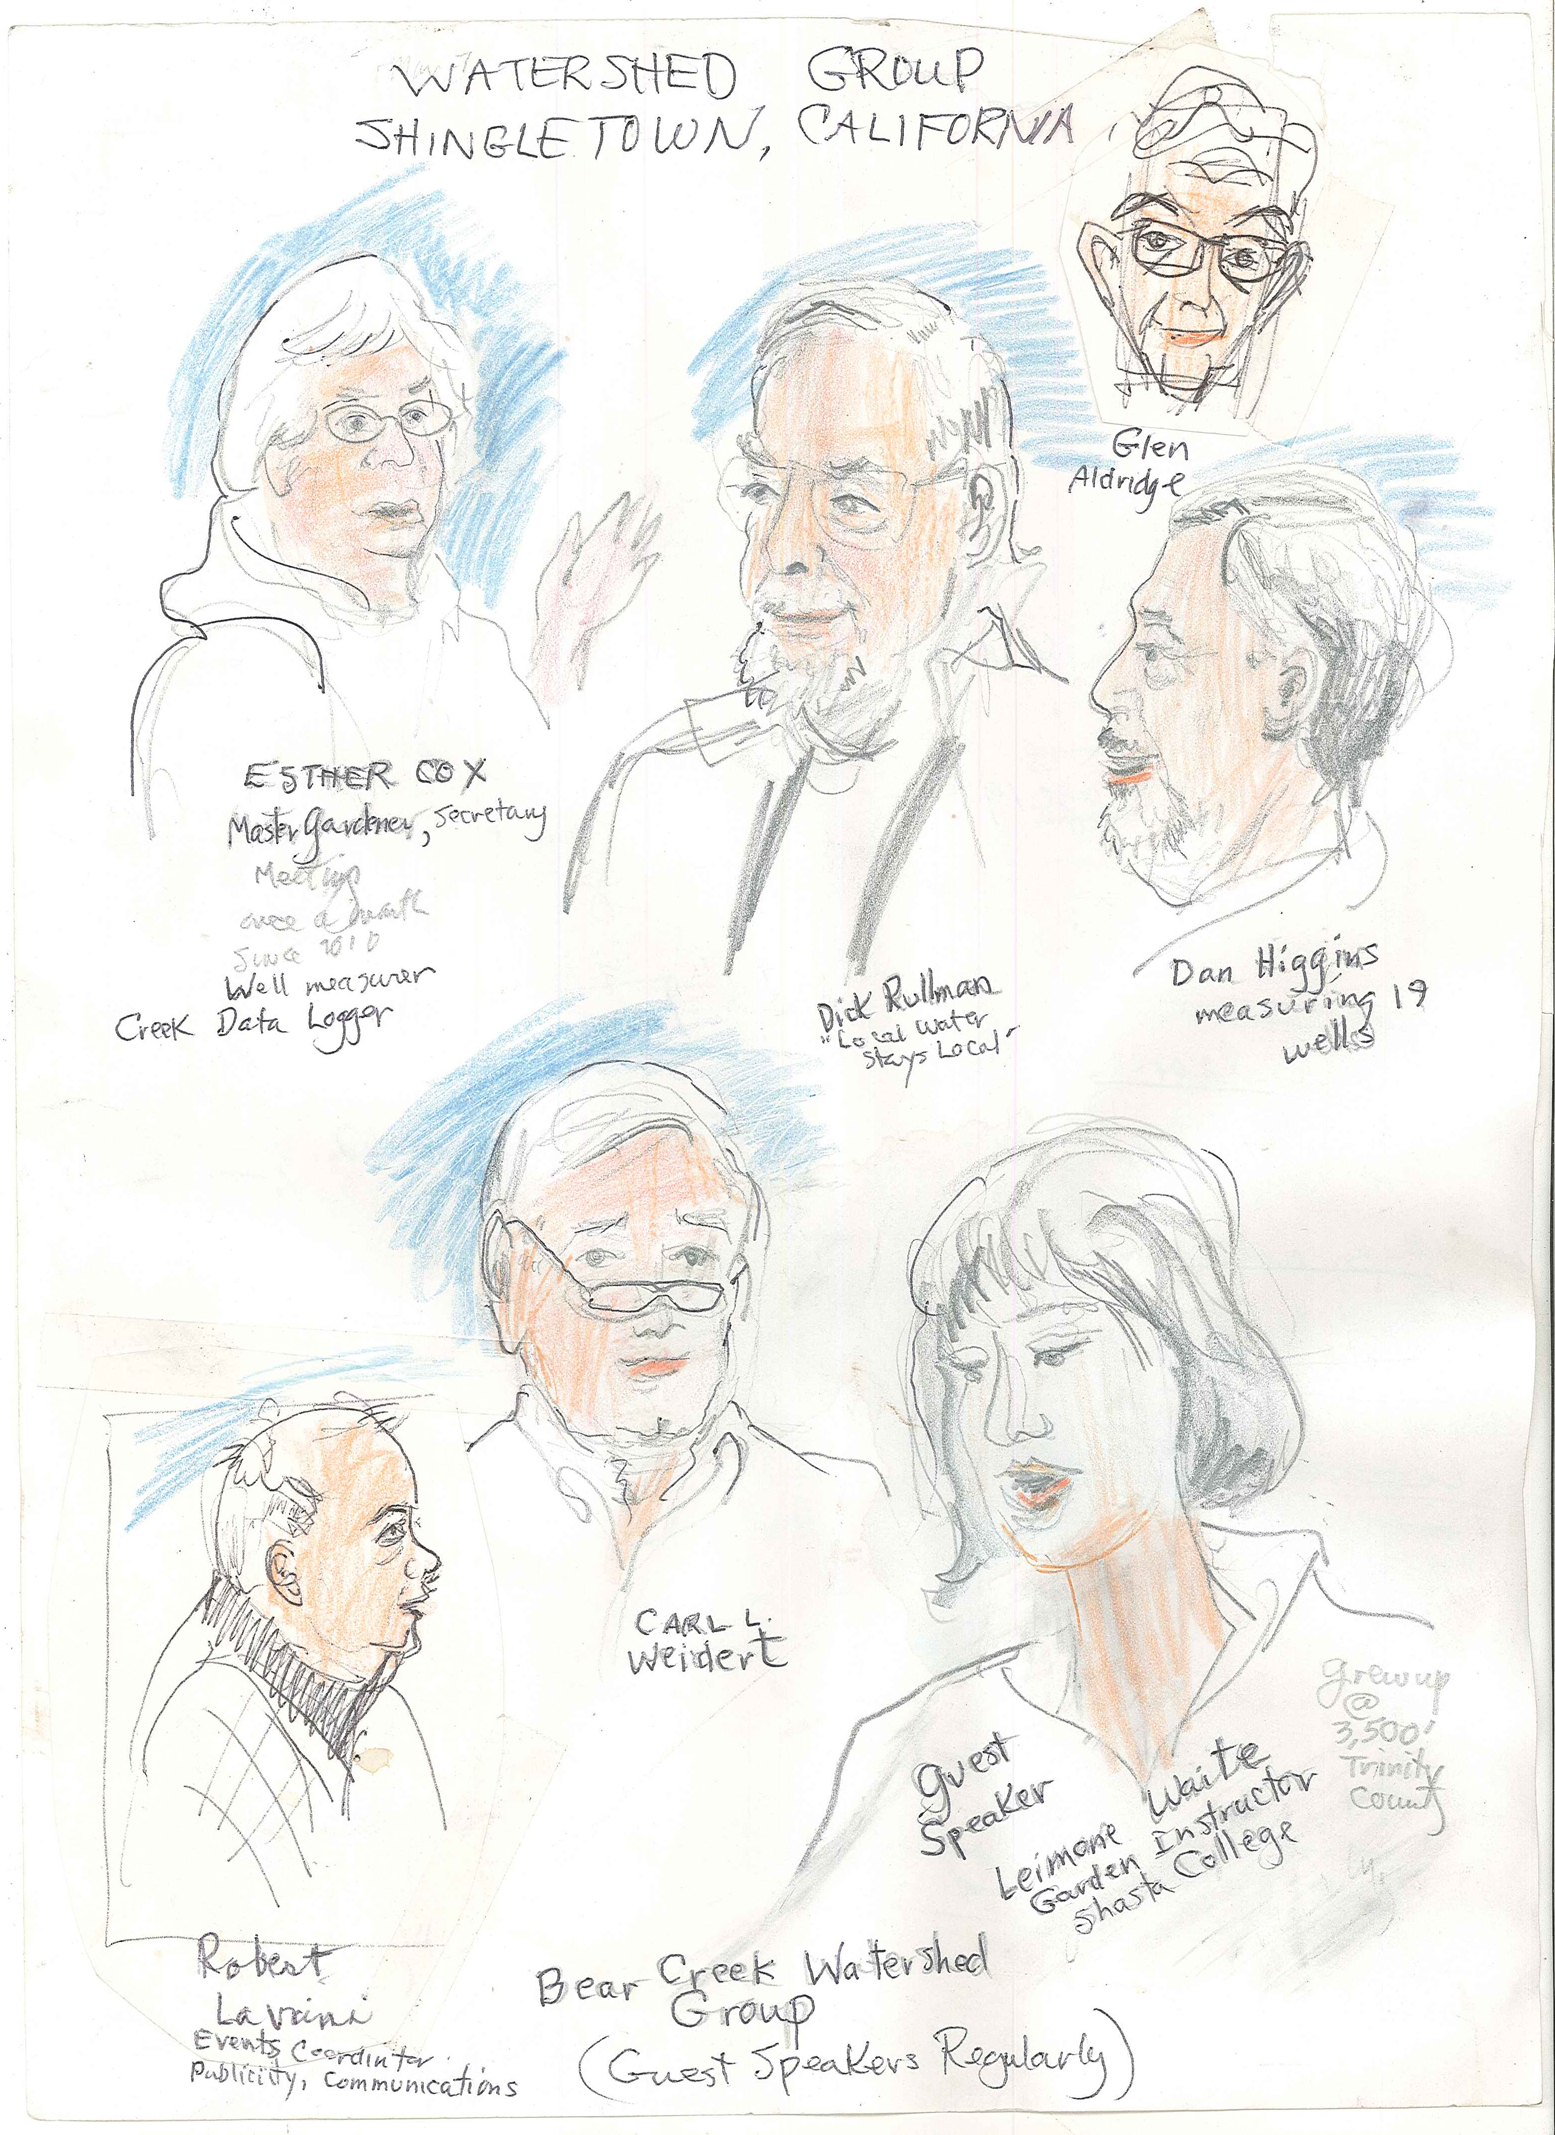 WATERSHED GROUP
SHINGLETOWN, CALIFORNIA
Glen
Aldridge
ESTHER COX
Master Gardener, Secretary
Meeting
once a month
Since 2010
Well measurer
Creek Data Logger
Dick Rullman
"Local Water
Stays Local"
Dan Higgins
measuring 19
wells
CARL L.
Weidert
Guest
Speaker
Leimone Waite
Garden Instructor
Shasta College
Grew up
@
3,500'
Trinity
County
Robert
Events Coordintor
Publicity, Communications
Bear Creek Watershed
Group
(Guest Speakers Regularly)